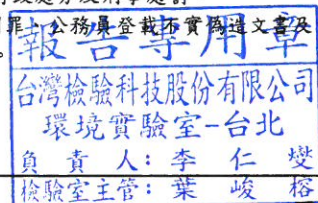 罪、公務員登載不實偽造文書及
報告專用章
台灣檢驗科技股份有限公司
環境實驗室-台北
負責人：李仁燮
檢驗室主管：葉峻榕